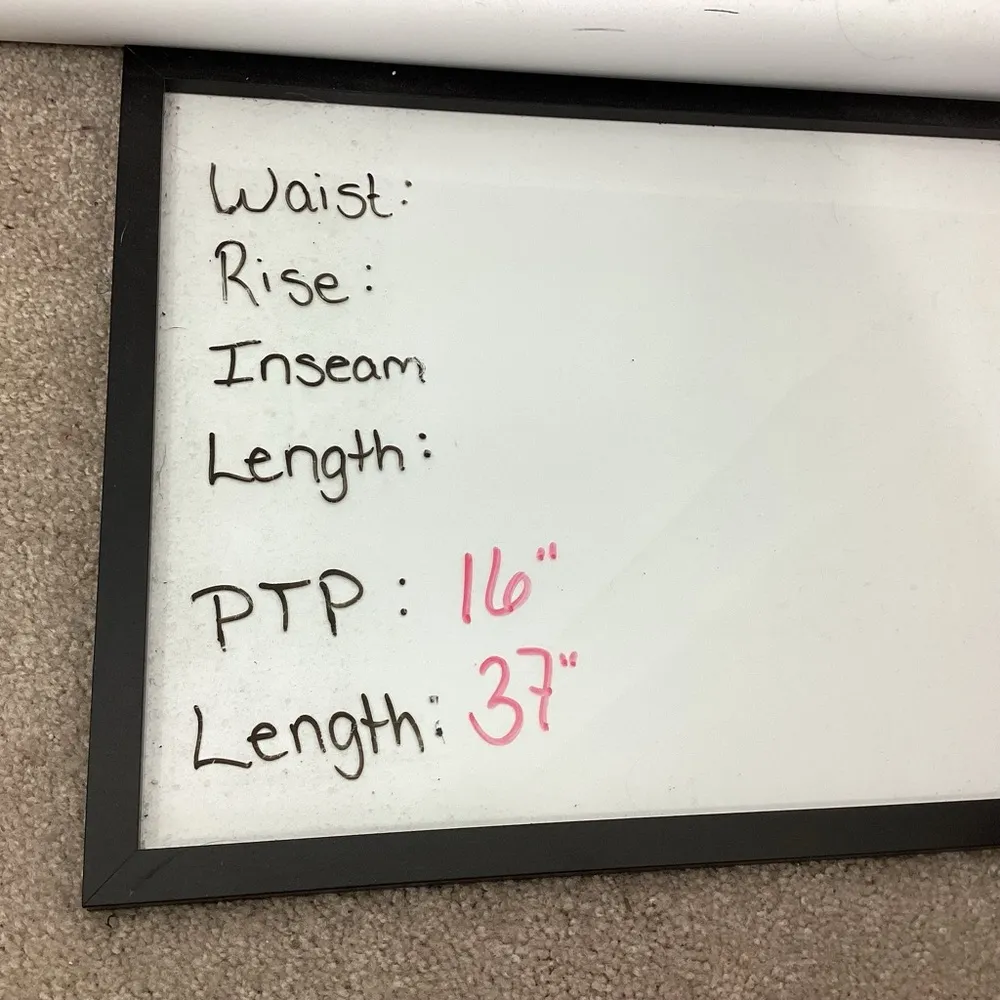 Waist:
Rise:
Inseam
Length:
PTP: 16"
Length: 37"